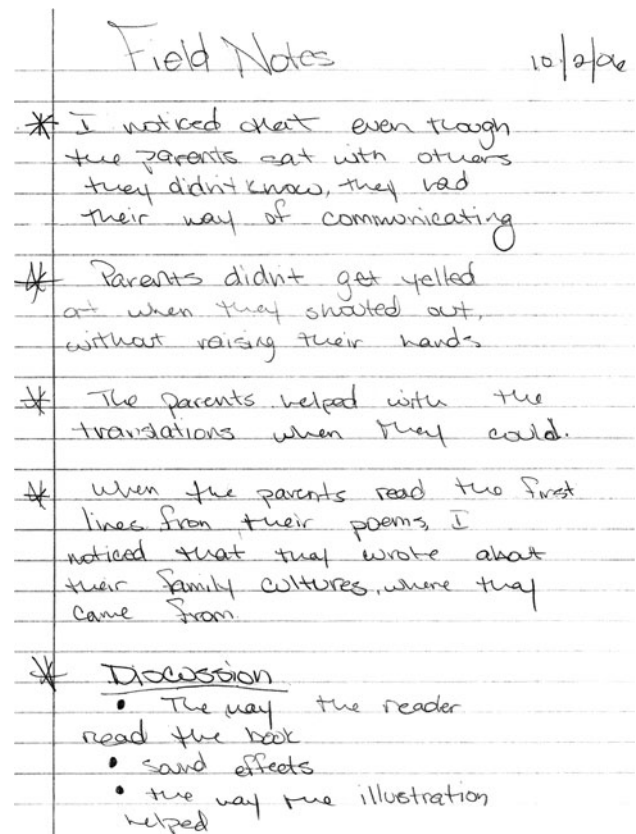 Field Notes 10/2/06
* I noticed that even though
the parents sat with others
they didn't know, they had
their way of communicating
* Parents didn't get yelled
at when they shouted out,
without raising their hands
* The parents helped with the
translations when they could.
* When the parents read the first
lines from their poems, I
noticed that they wrote about
their family cultures, where they
came from
* Discussion
• The way the reader
read the book
• sound effects
• the way the illustration
helped